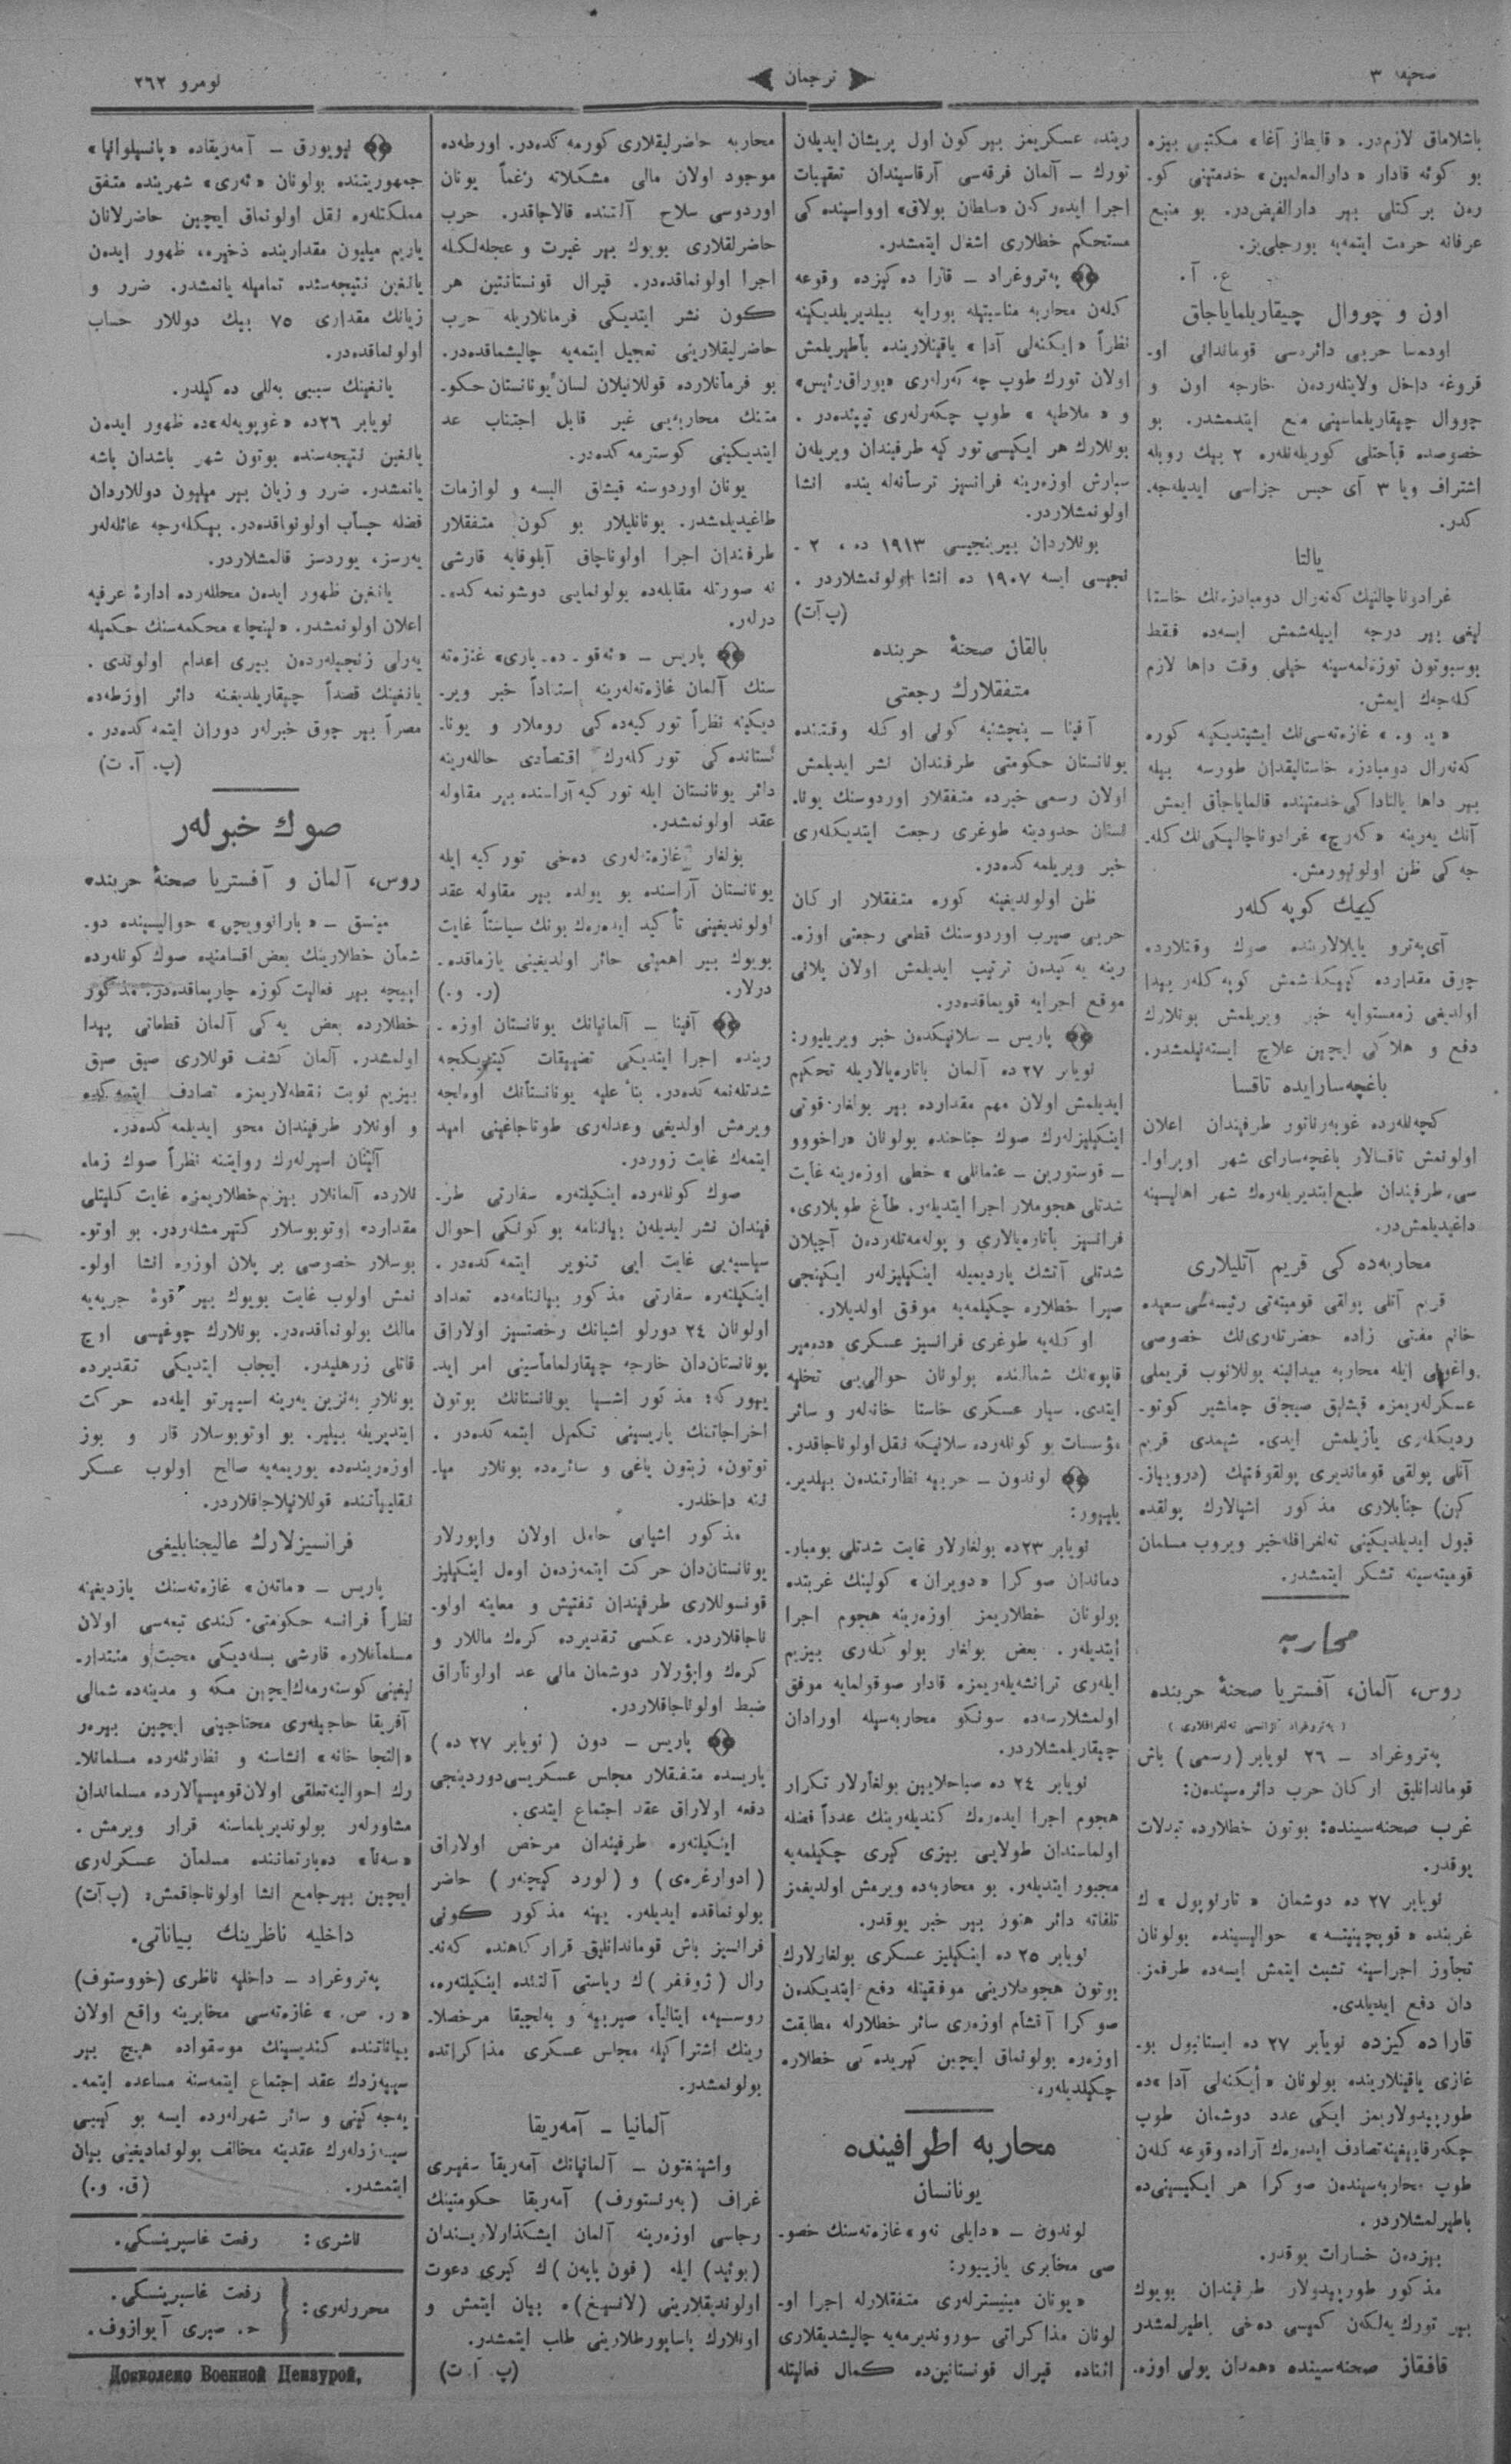 صحیفه ۳
ترجمان
نومرو ۲۶۲
باشلاماق لازمدر. «قایطاز آغا» مکتبی بیزه
بو کونه قادار «دارالمعلمین» خدمتینی کو-
رەن برکتلی بیر دارالفیض‌در. بو منبع
عرفانه حرمت ایتمەیه بورجلی‌یز.
ع. آ.
اون و چووال چیقاریلمایاجاق
اودەسا حربی دائرەسی قوماندانی او-
قروغ داخل ولایتلەردن خارجه اون و
چووال چیقاریلماسینی منع ایتدمشدر. بو
خصوصده قباحتلی کوریلەنلەره ۲ بیك روبله
اشتراف ویا ۳ آی حبس جزاسی ایدیلەجە-
کدر.
یالتا
غرادوناچالنیك کەنەرال دومبادزەنك خاستا
لیغی بیر درجه اییلەشمش ایسەده فقط
بوسبوتون توزەلمەسینه خیلی وقت داها لازم
کلەجەك ایمش.
«ی. و.» غازەتەسی‌نك ایشیتدیکینه کوره
کەنەرال دومبادزه خاستالیقدان طورسه بیله
بیر داها یالتاداکی خدمتینده قالمایاجاق ایمش
آنك یەرینه «کەرچ» غرادوناچالنیکی‌نك کلە-
جەکی ظن اولونیورمش.
کیهك کوپه کلەر
آی‌پەترو یایلالارینده صوك وقتلارده
چوق مقدارده کیهکلەشمش کوپه کلەر پیدا
اولدیغی زەمستوایه خبر ویریلمش بونلارك
دفع و هلاکی ایچین علاج ایستەنیلمشدر.
باغچەسارایده تاقسا
کچەنلەرده غوبەرناتور طرفیندان اعلان
اولونمش تاقسالار باغچەسارای شهر اوپراوا-
سی طرفیندان طبع‌ایتدیریلەرەك شهر اهالیسینه
داغیدیلمش‌در.
محاربەدەکی قریم آتلیلاری
قریم آتلی پولقی قومیتەتی رئیسەسی سعیده
خانم مفتی زاده حضرتلەری‌نك خصوصی
واغونی ایله محاربه میدانینه یوللانوب قریملی
عسکرلەریمزه قیشلیق صیجاق چماشیر کوتو-
ردیکلەری یازیلمش ایدی. شیمدی قریم
آتلی پولقی قوماندیری پولقوفنیك (دروبیاز-
کین) جنابلاری مذکور اشیالارك پولقده
قبول ایدیلدیکینی تەلغرافله‌خبر ویروب مسلمان
قومیتەسینه تشکر ایتمشدر.
محاربه
روس، آلمان، آفستریا صحنۀ حربنده
(پەتروغراد آژانسی تەلغرافلاری)
پەتروغراد – ۲۶ نویابر (رسمی) باش
قوماندانلیق ارکان حرب دائرەسیندەن:
غرب صحنەسینده: بوتون خطلارده تبدلات
یوقدر.
نویابر ۲۷ ده دوشمان «تارنوپول»ك
غربنده «قوپچینیتسه» حوالیسینده بولونان
تجاوز اجراسینه تشبث ایتمش ایسەده طرفمز-
دان دفع ایدیلدی.
قارا ده کیزده نویابر ۲۷ ده ایستانبول بو-
غازی یاقینلارینده بولونان «ایکنەلی آدا»ده
طورپیدولاریمز ایکی عدد دوشمان طوپ
چکەرقاییغینه‌تصادف ایدەرەك آراده‌وقوعه کلەن
طوپ محاربەسیندەن صوکرا هر ایکیسینی‌ده
باطیرلمشلاردر.
بیزدەن خسارات یوقدر.
مذکور طورپیدولار طرفیندان بویوك
بیر تورك یەلکەن کمیسی دەخی باطیرلمشدر
قافقاز صحنەسینده «همدان یولی اوزە-
رینده عسکریمز بیر کون اول پریشان ایدیلەن
تورك – آلمان فرقەسی آرقاسیندان تعقیبات
اجرا ایدەرکن «سلطان بولاق» اوواسیندەکی
مستحکم خطلاری اشغال ایتمشدر.
پەتروغراد – قارا دەکیزده وقوعه
کلەن محاربه مناسبتیله بورایه بیلدیریلدیکینه
نظراً «ایکنەلی آدا» یاقینلارینده باطیریلمش
اولان تورك طوپ چەکەرلەری «بوراق‌رئیس»
و «ملاطیه» طوپ چکەرلەری تیپیندەدر.
بونلارك هر ایکیسی‌تورکیه طرفیندان ویریلەن
سپارش اوزەرینه فرانسیز ترسانەلەرینده انشا
اولونمشلاردر.
بونلاردان بیرینجیسی ۱۹۱۳ ده، ۲ -
نجیسی ایسه ۱۹۰۷ ده انشا اولونمشلاردر.
(پ آ ت)
بالقان صحنۀ حربنده
متفقلارك رجعتی
آفینا – پنجشنبه کونی اوکله وقتنده
یونانستان حکومتی طرفندان نشر ایدیلمش
اولان رسمی خبرده متفقلار اوردوسنك یونا-
نستان حدودینه طوغری رجعت ایتدیکلەری
خبر ویریلمەکدەدر.
ظن اولوندیغینه کوره متفقلار ارکان
حربی صیرب اوردوسنك قطعی رجعتی اوزە-
رینه یەکیدن ترتیب ایدیلمش اولان پلانی
موقع اجرایه قویماقدەدر.
پاریس – سلانیکدەن خبر ویریلیور:
نویابر ۲۷ ده آلمان باتارەیالاریله تحکیم
ایدیلمش اولان مهم مقدارده بیر بولغار قوتی
اینکیلیزلەرك صوك جناحنده بولونان «راخووو
– قوستورین – عثمانلی» خطی اوزەرینه غایت
شدتلی هجوملار اجرا ایتدیلەر. طاغ طوپلاری،
فرانسیز باتارەیالاری و پولەمەتلەردەن آچیلان
شدتلی آتشك یاردیمیله اینکیلیزلەر ایکینجی
صیرا خطلاره چکیلمەیه موفق اولدیلار.
اوکلەیه طوغری فرانسیز عسکری «دەمیر
قاپو»نك شمالنده بولونان حوالی‌یی تخلیه
ایتدی. سیار عسکری خاستا خانەلەر و سائر
مؤسسات بو کونلەرده سلانیکه نقل اولوناجاقدر.
لوندون – حربیه نظارتندەن بیلدیر-
یلییور:
نویابر ۲۳ده بولغارلار غایت شدتلی بومبار-
دماندان صوکرا «دویران» کولینك غربنده
بولونان خطلاریمز اوزەرینه هجوم اجرا
ایتدیلەر. بعض بولغار بولوکلەری بیزیم
ایلەری ترانشەیلەریمزه قادار صوقولمایه موفق
اولمشلارسەده سونکو محاربەسیله اورادان
چیقاریلمشلاردر.
نویابر ۲۴ ده صباحلایین بولغارلار تکرار
هجوم اجرا ایدەرەك کندیلەرینك عدداً فضله
اولماسندان طولایی بیزی کیری چکیلمەیه
مجبور ایتدیلەر. بو محاربەده ویرمش اولدیغمز
تلفاته دائر هنوز بیر خبر یوقدر.
نویابر ۲۵ ده اینکیلیز عسکری بولغارلارك
بوتون هجوملارینی موفقیتله دفع ایتدیکدەن
صوکرا آقشام اوزەری سائر خطلارله مطابقت
اوزەره بولونماق ایچین کیریدەکی خطلاره
چکیلدیلەر.
محاربه اطرافینده
یونانسان
لوندون – «دایلی نەو» غازەتەسنك خصو-
صی مخابری یازییور:
«یونان مینیسترلەری متفقلارله اجرا او-
لونان مذاکراتی سوروندیرمەیه چالیشدیقلاری
اثناده قیرال قونستانین‌ده کمال فعالیتله
محاربه حاضرلیقلاری کورمەکدەدر. اورطەده
موجود اولان مالی مشکلاته رغماً یونان
اوردوسی سلاح آلتنده قالاجاقدر. حرب
حاضرلقلاری بویوك بیر غیرت و عجلەلکله
اجرا اولونماقدەدر. قیرال قونستانتین هر
کون نشر ایتدیکی فرمانلاریله حرب
حاضرلیقلارینی تعجیل ایتمەیه چالیشماقدەدر.
بو فرمانلارده قوللانیلان لسان یونانستان حکو-
متنك محاربەیی غیر قابل اجتناب عد
ایتدیکینی کوسترمەکدەدر.
یونان اوردوسنه قیشلق البسه و لوازمات
طاغیدیلمشدر. یونانلیلار بو کون متفقلار
طرفندان اجرا اولوناچاق آبلوقایه قارشی
نه صورتله مقابلەده بولونمایی دوشونمەکدە-
درلەر.
پاریس – «ئەقو-دە-پاری» غزەتە
سنك آلمان غازەتەلەرینه استناداً خبر ویر-
دیکینه نظراً تورکیەدەکی روملار و یونا-
نستاندەکی تورکلەرك اقتصادی حاللەرینه
دائر یونانستان ایله تورکیه آراسنده بیر مقاوله
عقد اولونمشدر.
بولغار غازەتەلەری دەخی تورکیه ایله
یونانستان آراسنده بو یولده بیر مقاوله عقد
اولوندیغینی تأکید ایدەرەك بونك سیاستاً غایت
بویوك بیر اهمیتی حائز اولدیغینی یازماقدە-
درلار. (ر. و.)
آفینا – آلمانیانك یونانستان اوزە-
رینده اجرا ایتدیکی تضییقات کیتدیکجه
شدتلەنمەکدەدر. بناء علیه یونانستانك اولجه
ویرمش اولدیغی وعدلەری طوتاجاغینی امید
ایتمەك غایت زوردر.
صوك کونلەرده اینکیلتەره سفارتی طر-
فیندان نشر ایدیلەن بیاننامه بو کونکی احوال
سیاسیەیی غایت ایی تنویر ایتمەکدەدر.
اینکیلتەره سفارتی مذکور بیاننامەده تعداد
اولونان ۲۴ دورلو اشیانك رخصتسیز اولاراق
یونانستان‌دان خارجه چیقاریلماماسینی امر اید-
ییورکه: مذکور اشیا یونانستانك بوتون
اخراجاتنك یاریسینی تکمیل ایتمەکدەدر.
توتون، زیتون یاغی و سائرەده بونلار میا-
ننه داخلدر.
مذکور اشیایی حامل اولان واپورلار
یونانستان‌دان حرکت ایتمەزدەن اول اینکیلیز
قونسوللاری طرفیندان تفتیش و معاینه اولو-
ناجاقلاردر. عکسی تقدیرده کرەك ماللار و
کرەك واپورلار دوشمان مالی عد اولوناراق
ضبط اولوناجاقلاردر.
پاریس – دون (نویابر ۲۷ ده)
پاریسده متفقلار مجلس عسکریسی‌دوردینجی
دفعه اولاراق عقد اجتماع ایتدی.
اینکیلتەره طرفیندان مرخص اولاراق
(ادوارغرەی) و (لورد کیچنەر) حاضر
بولونماقده ایدیلەر. ینه مذکور کونی
فرانسیز باش قوماندانلیق قرارکاهنده کەنە-
رال (ژوففر)ك ریاستی آلتنده اینکیلتەره،
روسیه، ایتالیا، صیربیه و بەلجیقا مرخصلا-
رینك اشتراکیله مجلس عسکری مذاکراتده
بولونمشدر.
آلمانیا – آمەریقا
واشینغتون – آلمانیانك آمەریقا سفیری
غراف (بەرنستورف) آمەریقا حکومتینك
رجاسی اوزەرینه آلمان ایشکذارلاریندان
(بوئید) ایله (فون پاپەن)ك کیری دعوت
اولوندیقلارینی (لانسیغ)ه بیان ایتمش و
اونلارك پاساپورطلارینی طلب ایتمشدر.
(پ. آ. ت)
نیویورق – آمەریقاده «پانسیلوانیا»
جمهوریتنده بولونان «ئەری» شهرینده متفق
مملکتلەره نقل اولونماق ایچین حاضرلانان
یاریم میلیون مقدارینده ذخیره، ظهور ایدەن
یانغین نتیجەسنده تمامیله یانمشدر. ضرر و
زیانك مقداری ۷۵ بیك دوللار حساب
اولونماقدەدر.
یانغینك سببی بەللی دەکیلدر.
نویابر ۲۶ده «غوپویەله»ده ظهور ایدەن
یانغین نتیجەسنده بوتون شهر باشدان باشه
یانمشدر. ضرر و زیان بیر میلیون دوللاردان
فضله حساب اولونواقدەدر. بیکلەرجه عائلەلەر
یەرسز، یوردسز قالمشلاردر.
یانغین ظهور ایدەن محللەرده ادارۀ عرفیه
اعلان اولونمشدر. «لینچا» محکمەسنك حکمیله
یەرلی زنجیلەردەن بیری اعدام اولوندی.
یانغینك قصداً چیقاریلدیغنه دائر اورطەده
مصراً بیر چوق خبرلەر دوران ایتمەکدەدر.
(پ. آ. ت)
صوك خبرلەر
روس، آلمان و آفستریا صحنۀ حربنده
مینسق – «بارانوویچی» حوالیسینده دو-
شمان خطلارینك بعض اقسامنده صوك کونلەرده
اپیجه بیر فعالیت کوزه چارپماقدەدر. مذکور
خطلارده بعض یەکی آلمان قطعاتی پیدا
اولمشدر. آلمان کشف قوللاری صیق صیق
بیزیم نوبت نقطەلاریمزه تصادف ایتمەکده
و اونلار طرفیندان محو ایدیلمەکدەدر.
آلینان اسیرلەرك روایتنه نظراً صوك زما-
نلارده آلمانلار بیزیم‌خطلاریمزه غایت کلیتلی
مقدارده اوتوبوسلار کتیرمشلەردر. بو اوتو-
بوسلار خصوصی بر پلان اوزره انشا اولو-
نمش اولوب غایت بویوك بیر قوۀ جریەیه
مالك بولونماقدەدر. بونلارك چوغیسی اوچ
قاتلی زرهلیدر. ایجاب ایتدیکی تقدیرده
بونلار بەنزین یەرینه اسپیرتو ایلەده حرکت
ایتدیریله بیلیر. بو اوتوبوسلار قار و بوز
اوزەریندەده یوریمەیه صالح اولوب عسکر
نقلیاتنده قوللانیلاجاقلاردر.
فرانسیزلارك عالیجنابلیغی
پاریس – «ماتەن» غازەتەسنك یازدیغینه
نظراً فرانسه حکومتی کندی تبعەسی اولان
مسلمانلاره قارشی بسلەدیکی محبت و منتدار-
لیغینی کوسترمەك‌ایچین مکه و مدینەده شمالی
آفریقا حاجیلەری محتاجینی ایچین بیرەر
«التجا خانه» انشاسنه و نظارتلەرده مسلمانلا-
رك احوالینه‌تعلقی اولان‌قومیسیالارده مسلماندان
مشاورلەر بولوندیریلماسنه قرار ویرمش.
«سەنا» دەپارتماننده مسلمان عسکرلەری
ایچین بیرجامع انشا اولوناجاقمش. (پ آ ت)
داخلیه ناظرینك بیاناتی.
پەتروغراد – داخلیه ناظری (خووستوف)
«ر. ص.» غازەتەسی مخابرینه واقع اولان
بیاناتنده کندیسینك موسقواده هیچ بیر
سیەزدك عقد اجتماع ایتمەسنه مساعده ایتمە-
یەجەکینی و سائر شهرلەرده ایسه بو کیبی
سیەزدلەرك عقدینه مخالف بولونمادیغینی بیان
ایتمشدر. (ق. و.)
ناشری: رفعت غاسپرینسکی.
محررلەری: رفعت غاسپرینسکی.
ح. صبری آیوازوف.
Дозволено Военной Цензурой.